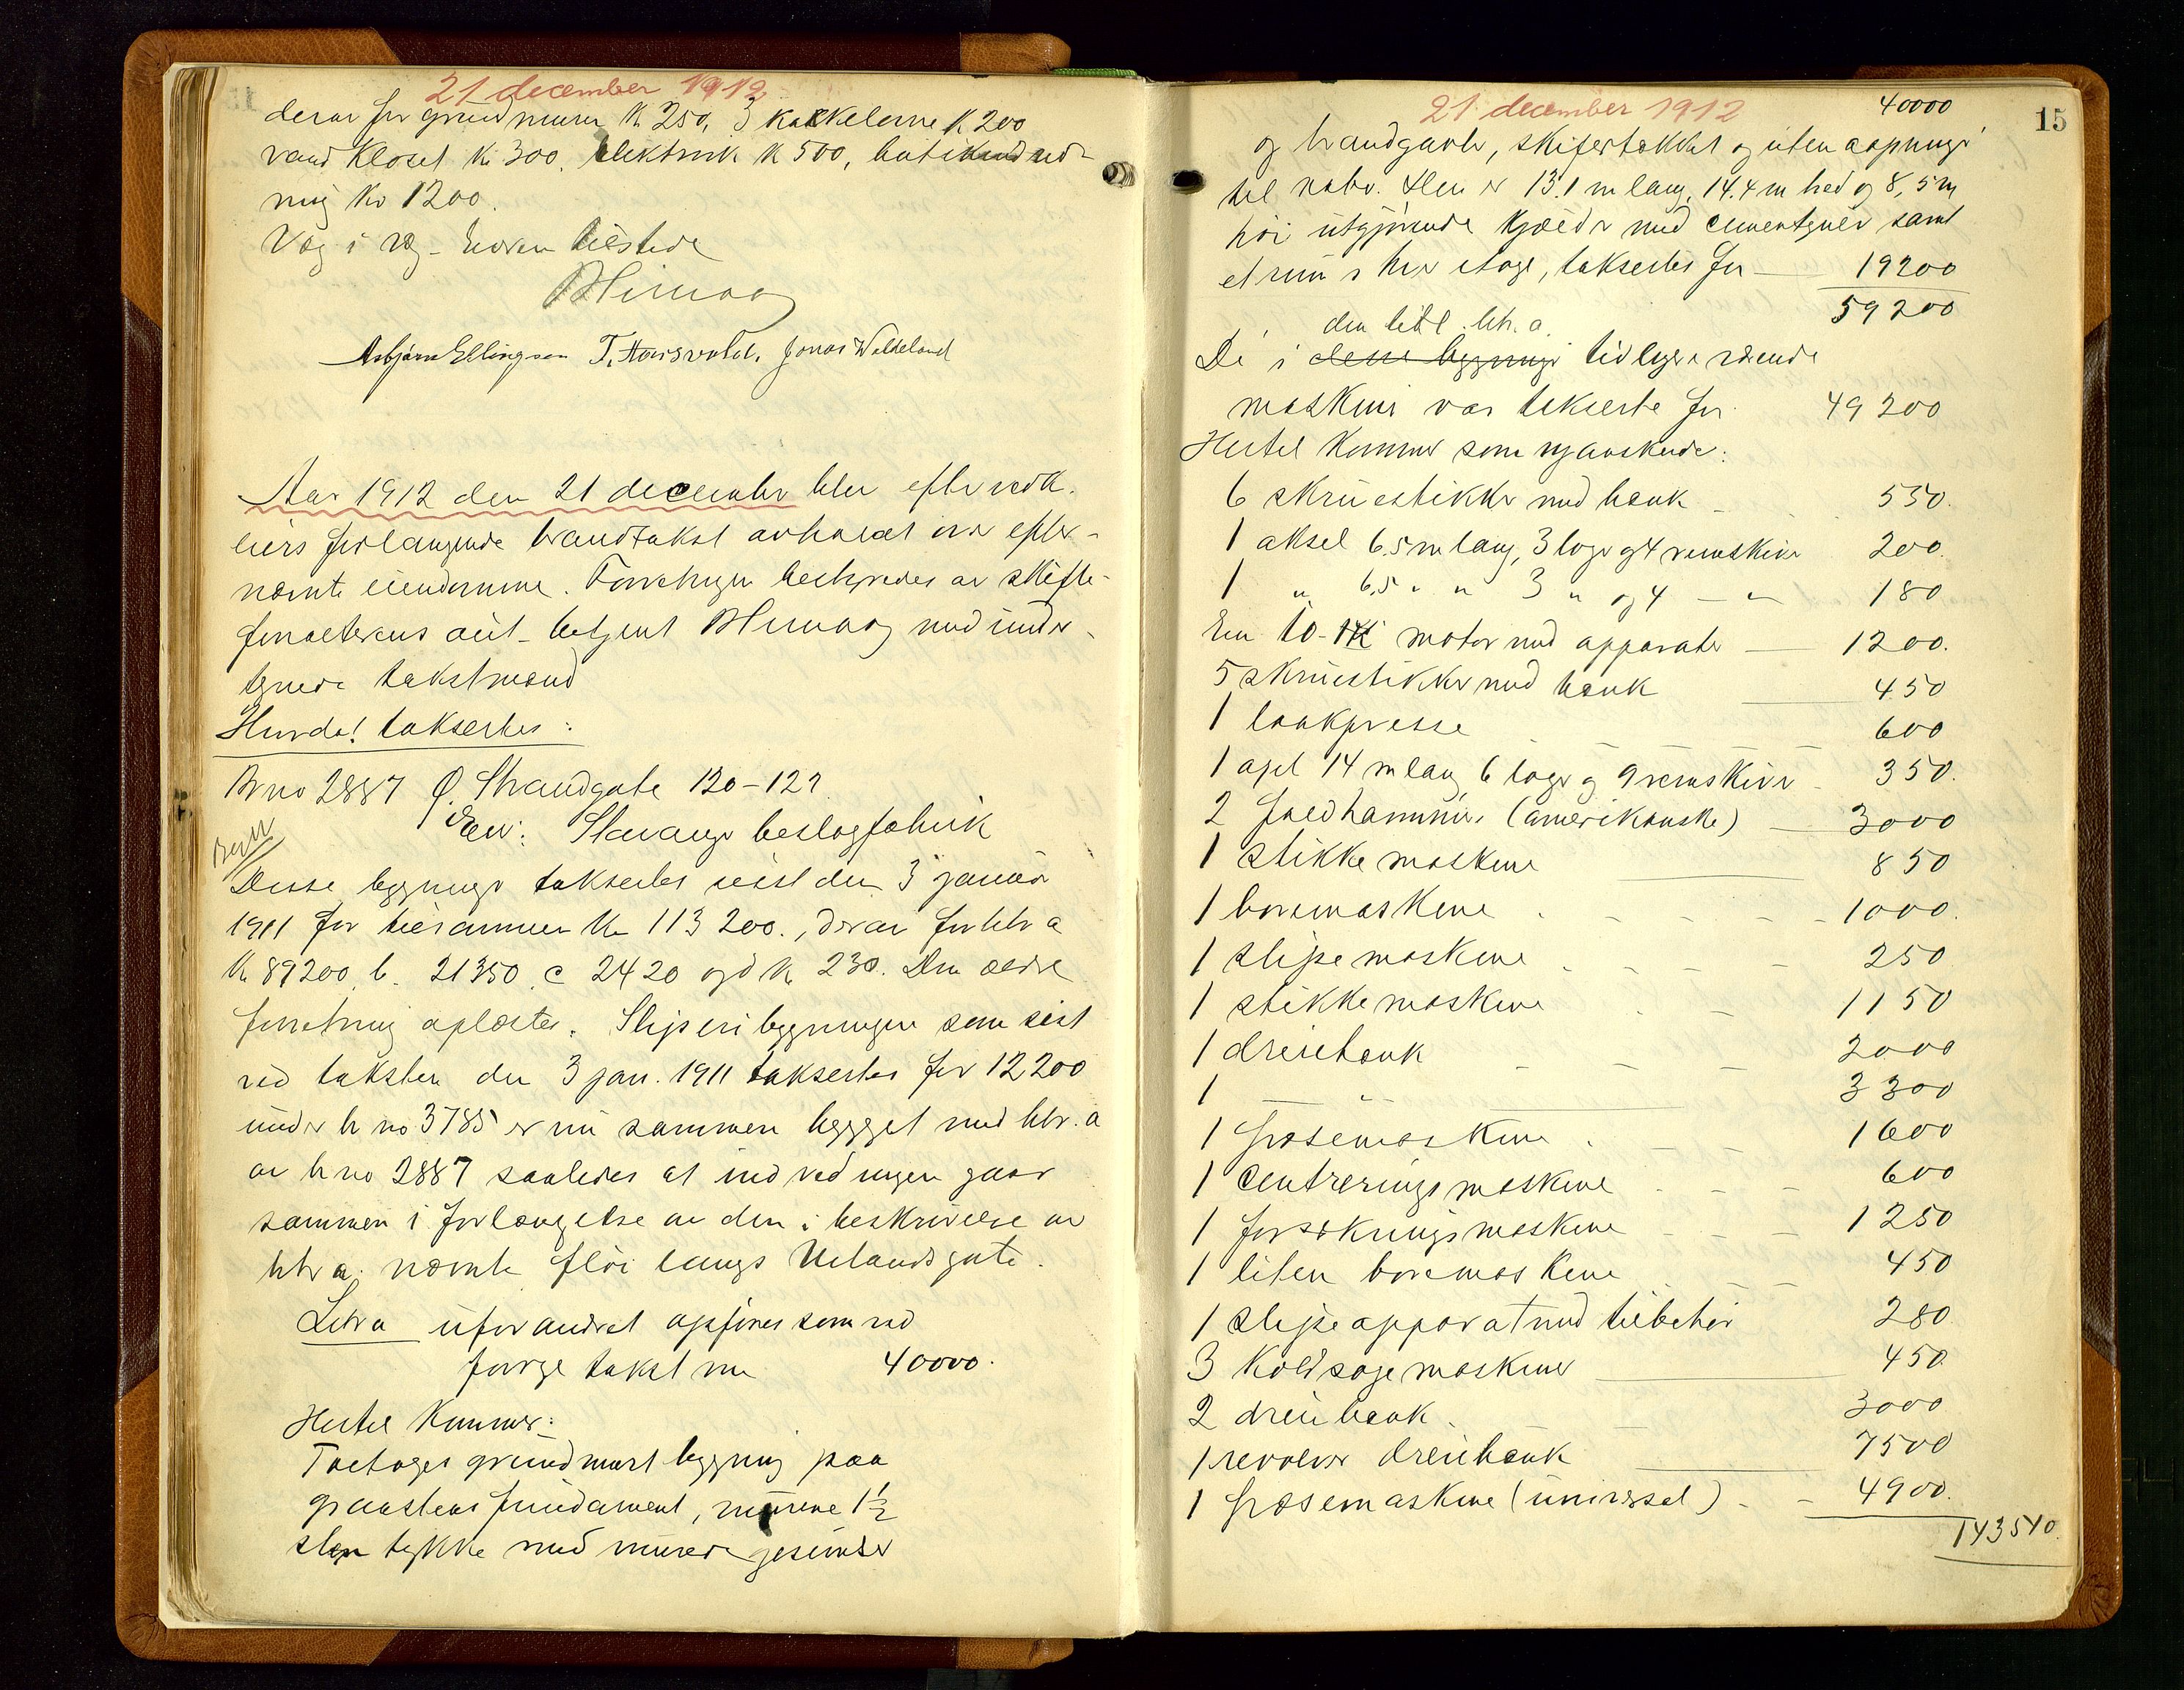 21 december 1912
derav for grundmuren K 250, 3 kakkelovne K 200
vand Kloset Kr 300. elektrisk K 500, butikindred-
ning Kr 1200.
Asbjørn Ellingsen T. Hausvold. Jonas Waldeland
Aar 1912 den 21 december blev efter vedk.
eiers forlangende brandtakst avholdt over efter-
nævnte eiendomme. Forretningen bestyredes av skifte-
forvalterens aut. betjent med under-
tegnede takstmænd
Hvorda! taksertes:
Br no 2887 Ø. Strandgate 120-122
Eier: Stavanger beslagfabrik
Disse bygninger taksertes sidst den 3 januar
1911 for tilsammen Kr 113 200., derav for litr a
Kr 89200, b. 21350, c 2420 og d Kr 230. Den ældre
forretning oplæstes. Sliperibygningen som sist
ved taksten den 3 jan. 1911 takserter for 12200
under br no 3785 er nu sammen bygget med litr. a
av br no 2887 saaledes at indvedningen gaar
sammen i forlængelse av den i beskrivelse av
litr a. nævnte fløi langs Uelandsgate.
Litr a uforandret opføres som ved
forrige takst me 40000.
Hertil kommer:
Toetages grundmurt bygning paa
graastens fundament, murene 1½
sten tykke med murede gesimser
15
21 december 1912
40000
og brandgavle, skifertækket og uten aapninger
til nabo. Den er 13.1 m lang, 14.4 m bred og 8,5 m
høi utgjørende kjælder med cementgulv samt
et rum i hver etage, takseres for 19200
59200
den tidl. litr. a.
De i disse bygninger tidligere værende
maskiner var takserte for 49 200
Hertil kommer som nyanskede:
6 skruestikker med bænk 550.
1 aksel 6.5 m lang, 3 lager og 4 remskiver 200.
1 " 6,5 " " 3 " og 4 — " 180
En 10-HK motor med apparater 1200.
5 skruestikker med bænk 450
1 lookpresse 600
1 axel 14 m lang 6 lager og 9 remskiver 350.
2 faldhammere (amerikanske) 3000
1 stikkemaskine 850
1 boremaskine 1000.
1 slipemaskine 250
1 stikkemaskine 1150
1 dreiebænk 2000
1 — " — 3300
1 fræsemaskine 1600
1 centreringsmaskine 600
1 forsøkningsmaskine 1250
1 liten boremaskine 450
1 slipeapparat med tilbehør 280
3 koldsagemaskiner 450
2 dreiebænk 3000
1 revolver dreiebænk 7500
1 fræsemaskine (universel) 4900.
143540.